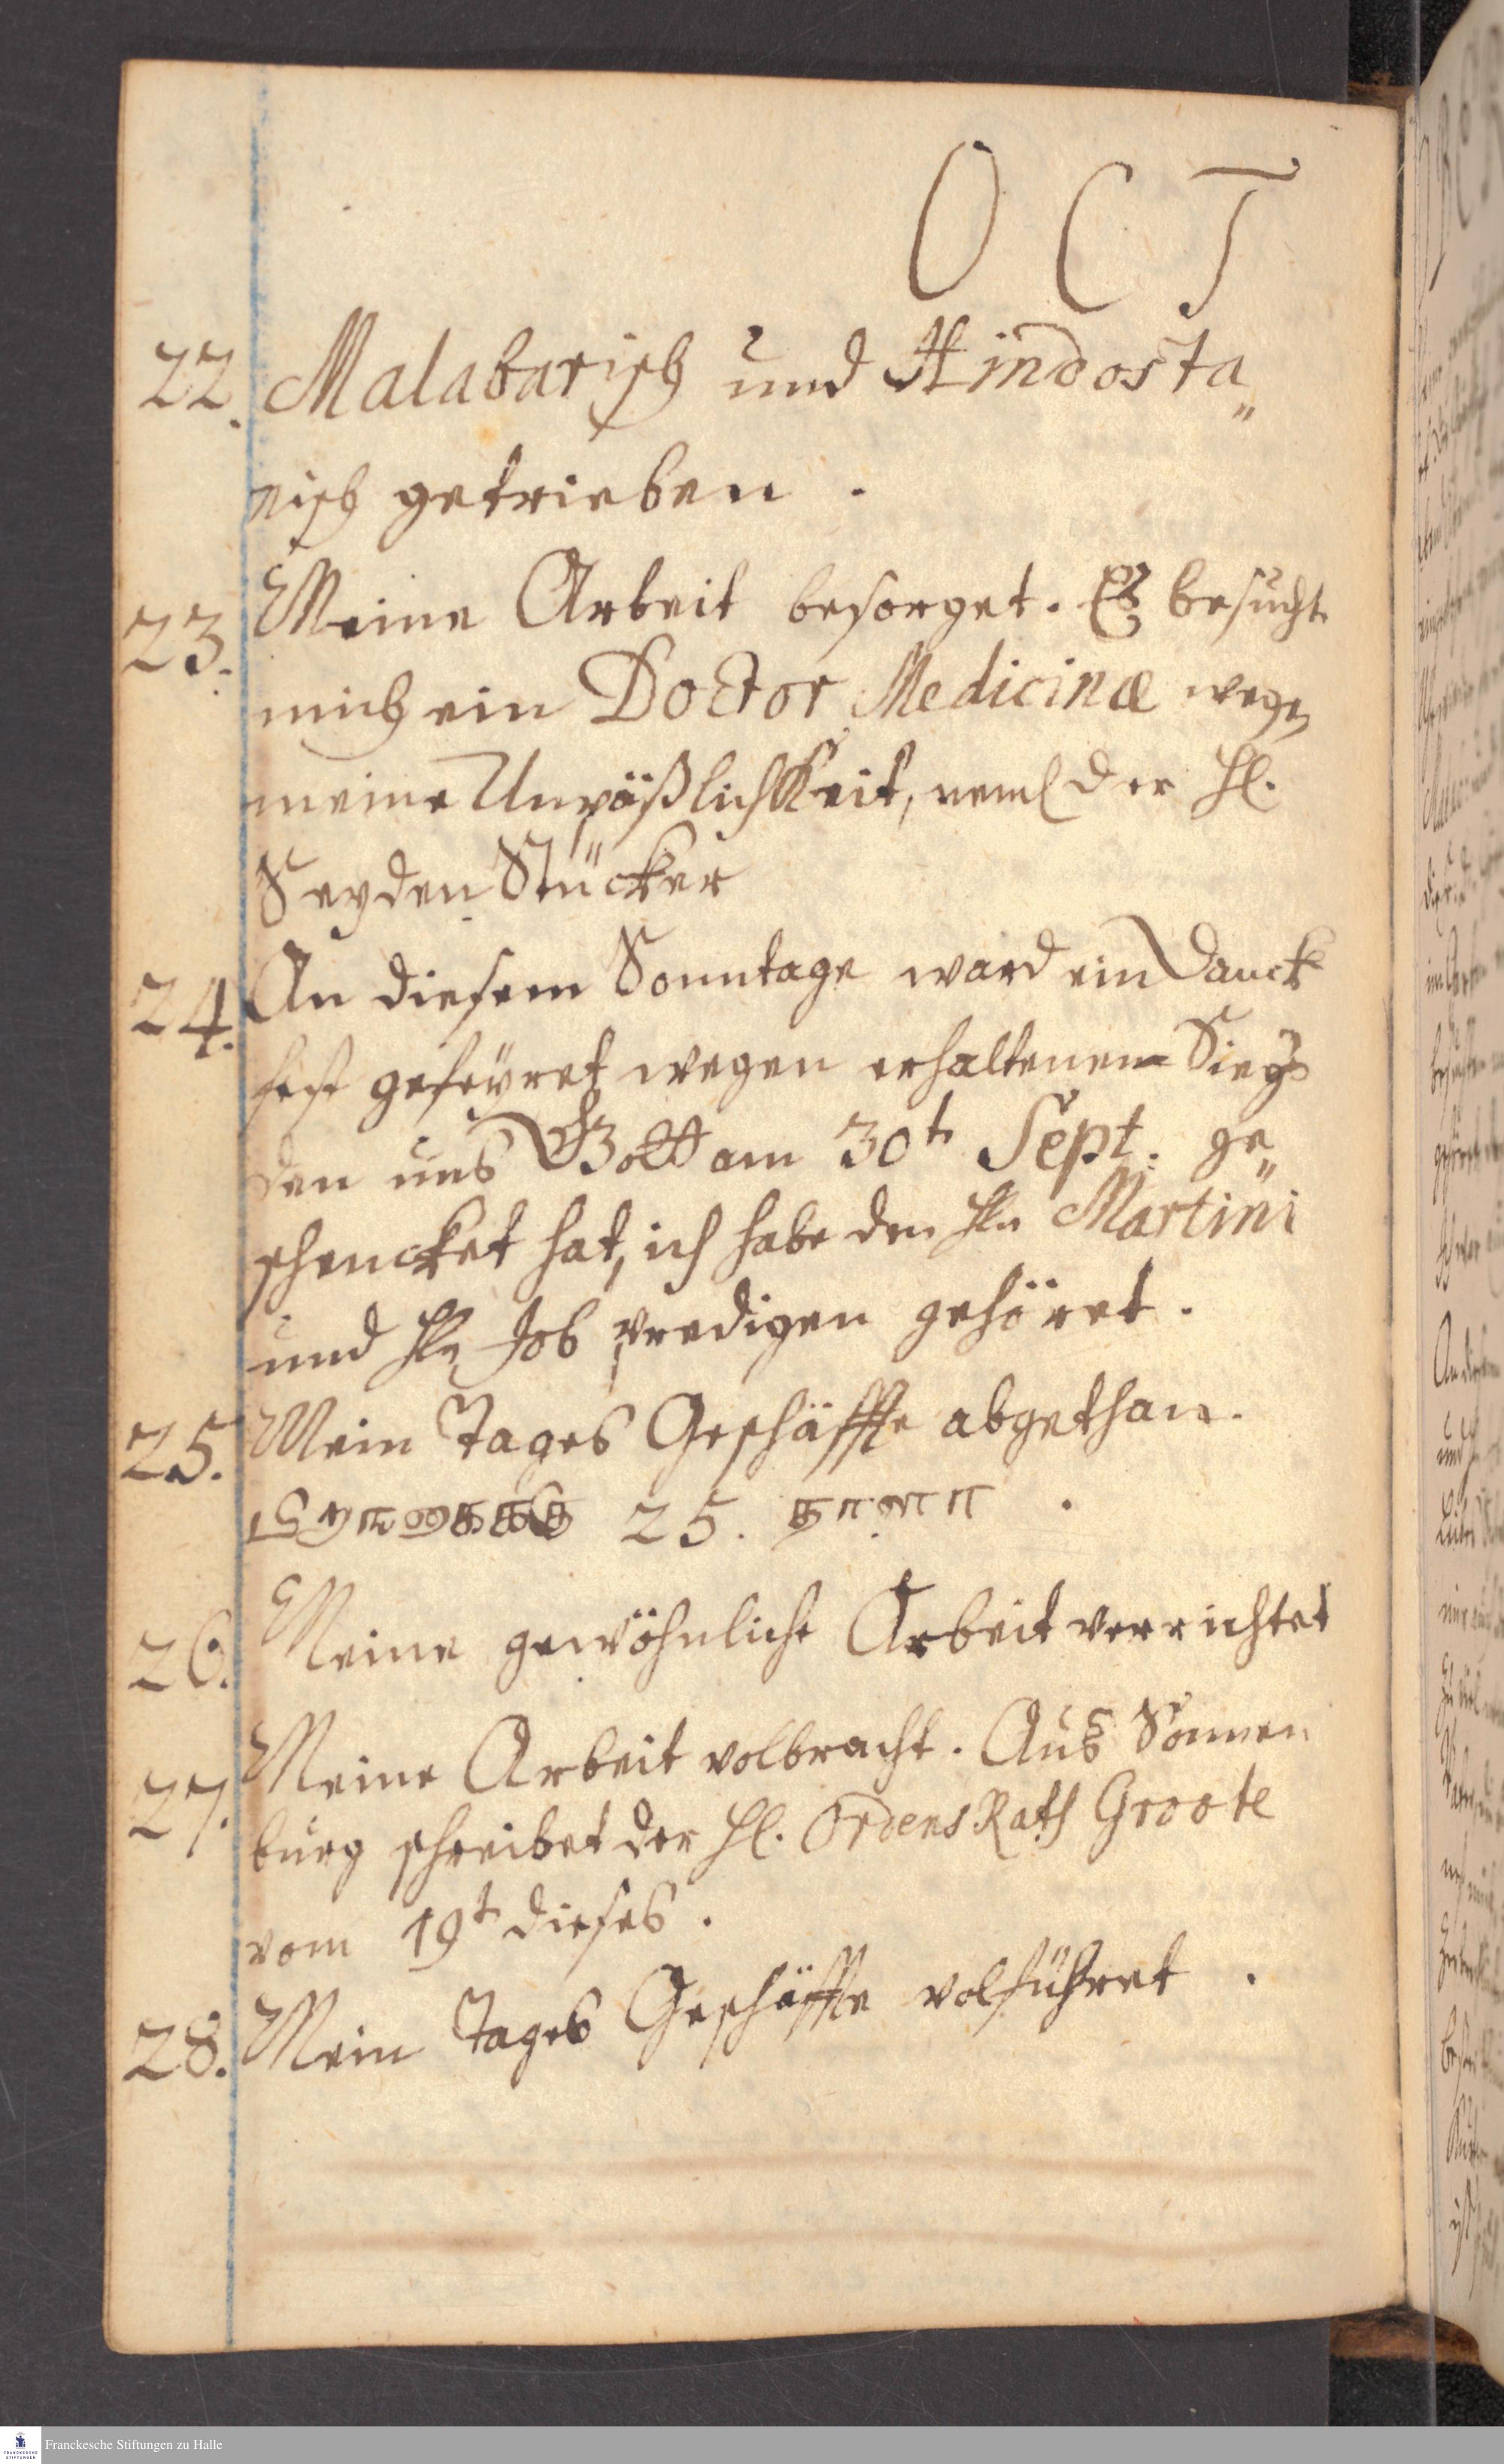 OCT
22. Malabarisch und Hindosta„
nisch getrieben.
23. Meine Arbeit besorget. Es besucht
mich ein Doctor Medicinæ wegen
meine Unpäßlichkeit, neml der Hl.
Seyden Stücker
24. An diesem Sonntage ward ein Danck
fest gefeyret wegen erhaltenem Siegs
den uns Gott am 30t Sept. ge„
schencket hat, ich habe den Hln Martini
und Hln Job predigen gehöret.
25. Mein Tages Geschäffte abgethan.
25.
26. Meine gewöhnliche Arbeit verrichtet
27. Meine Arbeit volbracht. Aus Sonnen
burg schreibet der Hl. Ordens Rath Groote
vom 19t dieses.
28. Mein Tages Geschäffte volführet.
Franckesche Stiftungen zu Halle